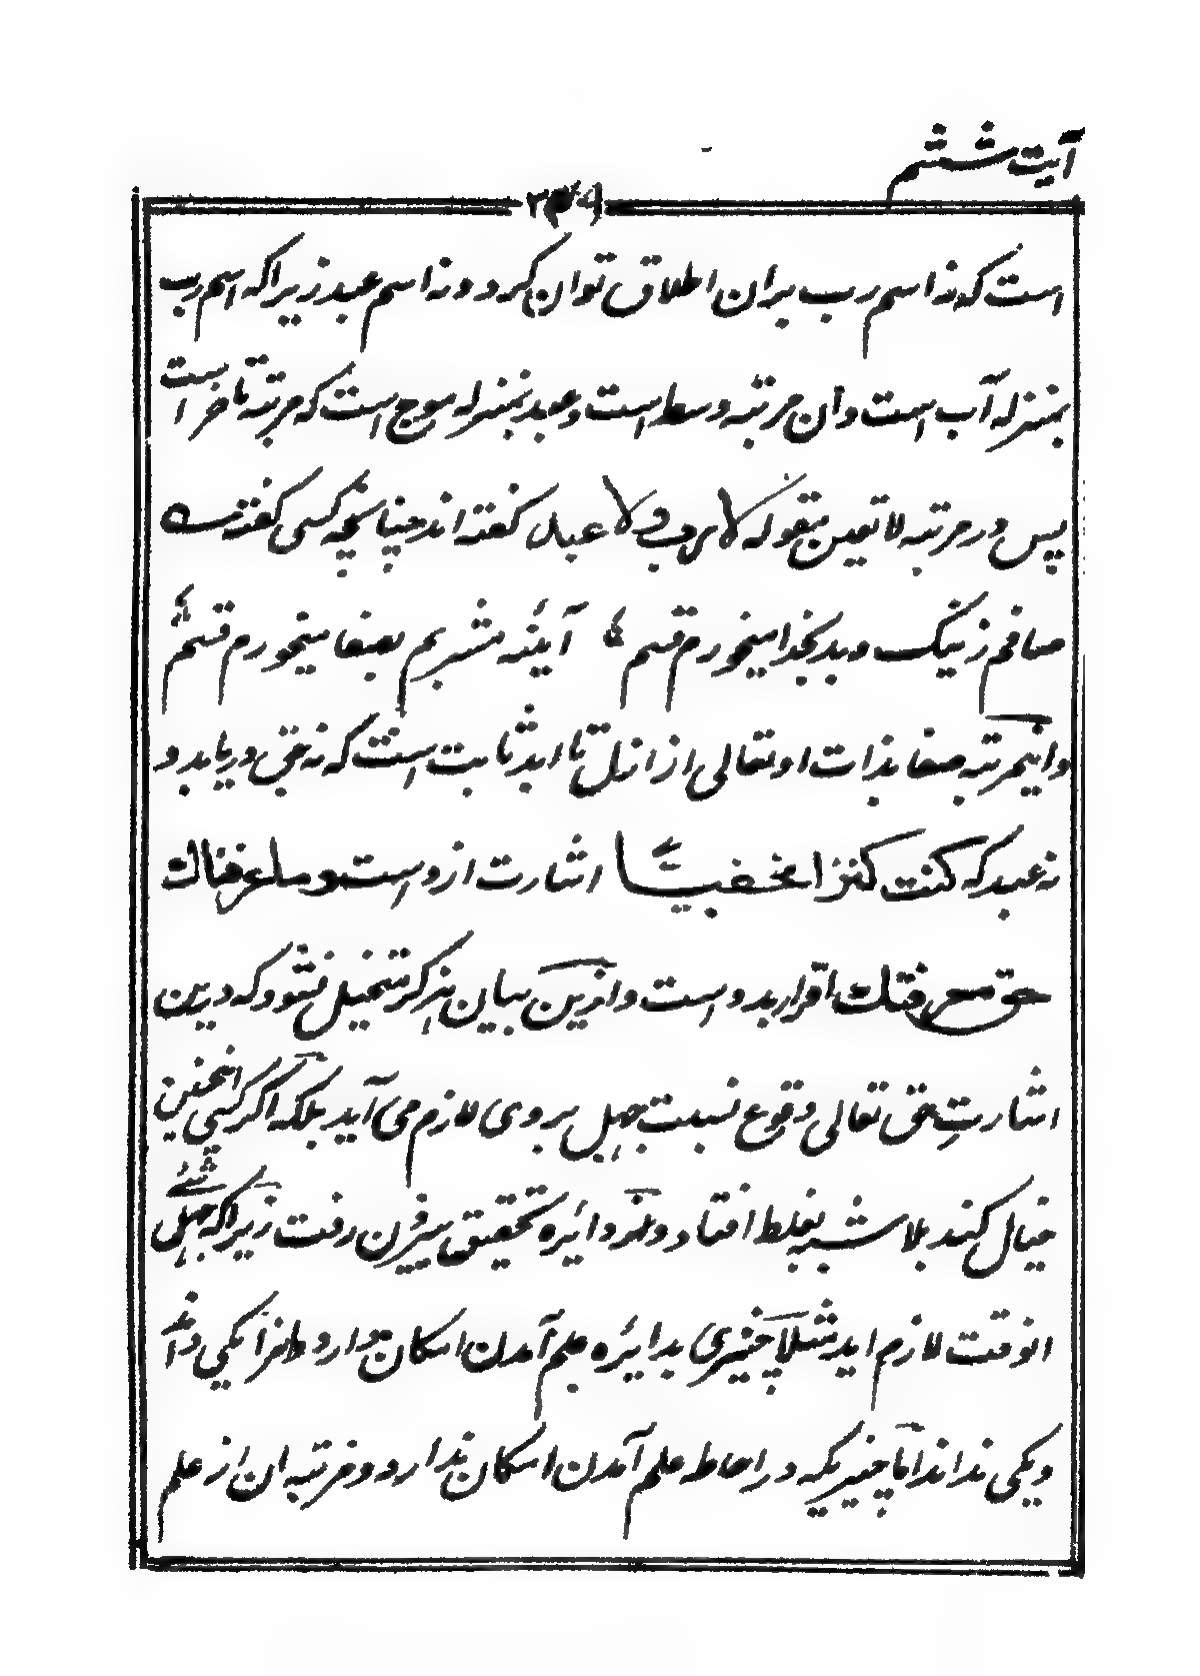 آیت ششم
است که نه اسم رب بران اطلاق توان کرد و نه اسم عبد زیراکه اسم رب
بمنزله آب است و آن مرتبه وسط است و عبد بمنزله موج است که مرتبه تاخر است
پس در مرتبه لا تعین مقوله لا رب ولا عبد گفته اند چنانچه کسی گفته
صافم ز نیک و بد بخدا میخورم قسم آیینه مشربم بصفا میخورم قسم
و اینمرتبه صفا بذات او تعالی از ازل تا ابد ثابت است که نه حق دریابد و
نه عبد که کنت کنزا مخفیا اشارت ازوست و ما عرفناك
حق معرفتك اقرار بدوست و ازین بیان هرگز متخیل نشود که درین
اشارت حق تعالی وقوع نسبت جهل بر وی لازم می آید بلکه اگر کسی اینچنین
خیال کند بلا شبه بغلط افتاد و از دائره تحقیق بیرون رفت زیراکه جهل شئے
انوقت لازم اید مثلا چیزی بدایره علم آمدن امکان دارد و انرا یکی داند
و یکی نداند اما چیزیکه در احاطه علم آمدن امکان ندارد و مرتبه ان از علم